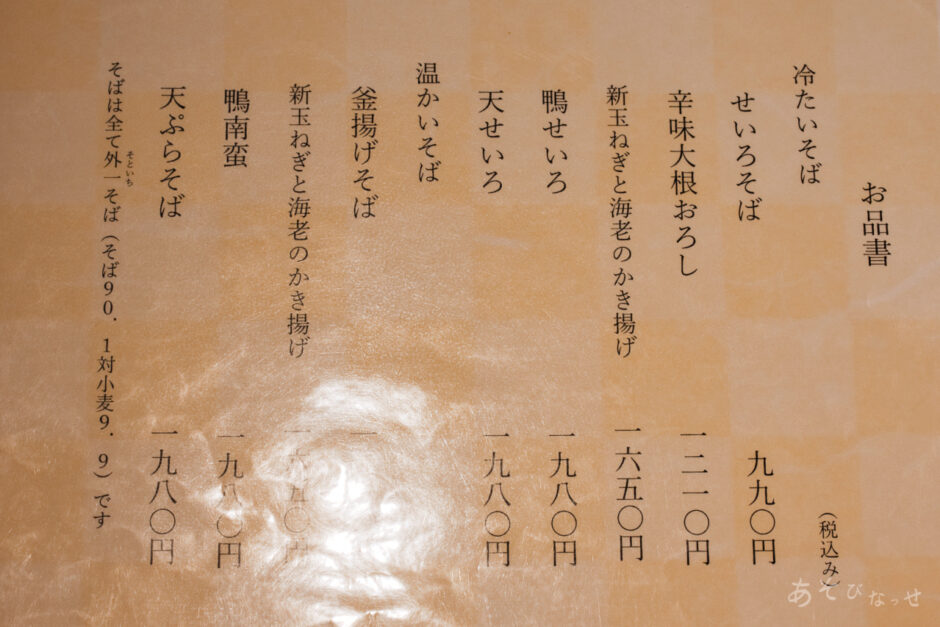 お品書
(税込み)
冷たいそば
せいろそば 九九〇円
辛味大根おろし 一二一〇円
新玉ねぎと海老のかき揚げ 一六五〇円
鴨せいろ 一九八〇円
天せいろ 一九八〇円
温かいそば
釜揚げそば 一
新玉ねぎと海老のかき揚げ 一六五〇円
鴨南蛮 一九八〇円
天ぷらそば 一九八〇円
そといち
そばは全て外一そば(そば90.1対小麦9.9)です
あそびなっせ